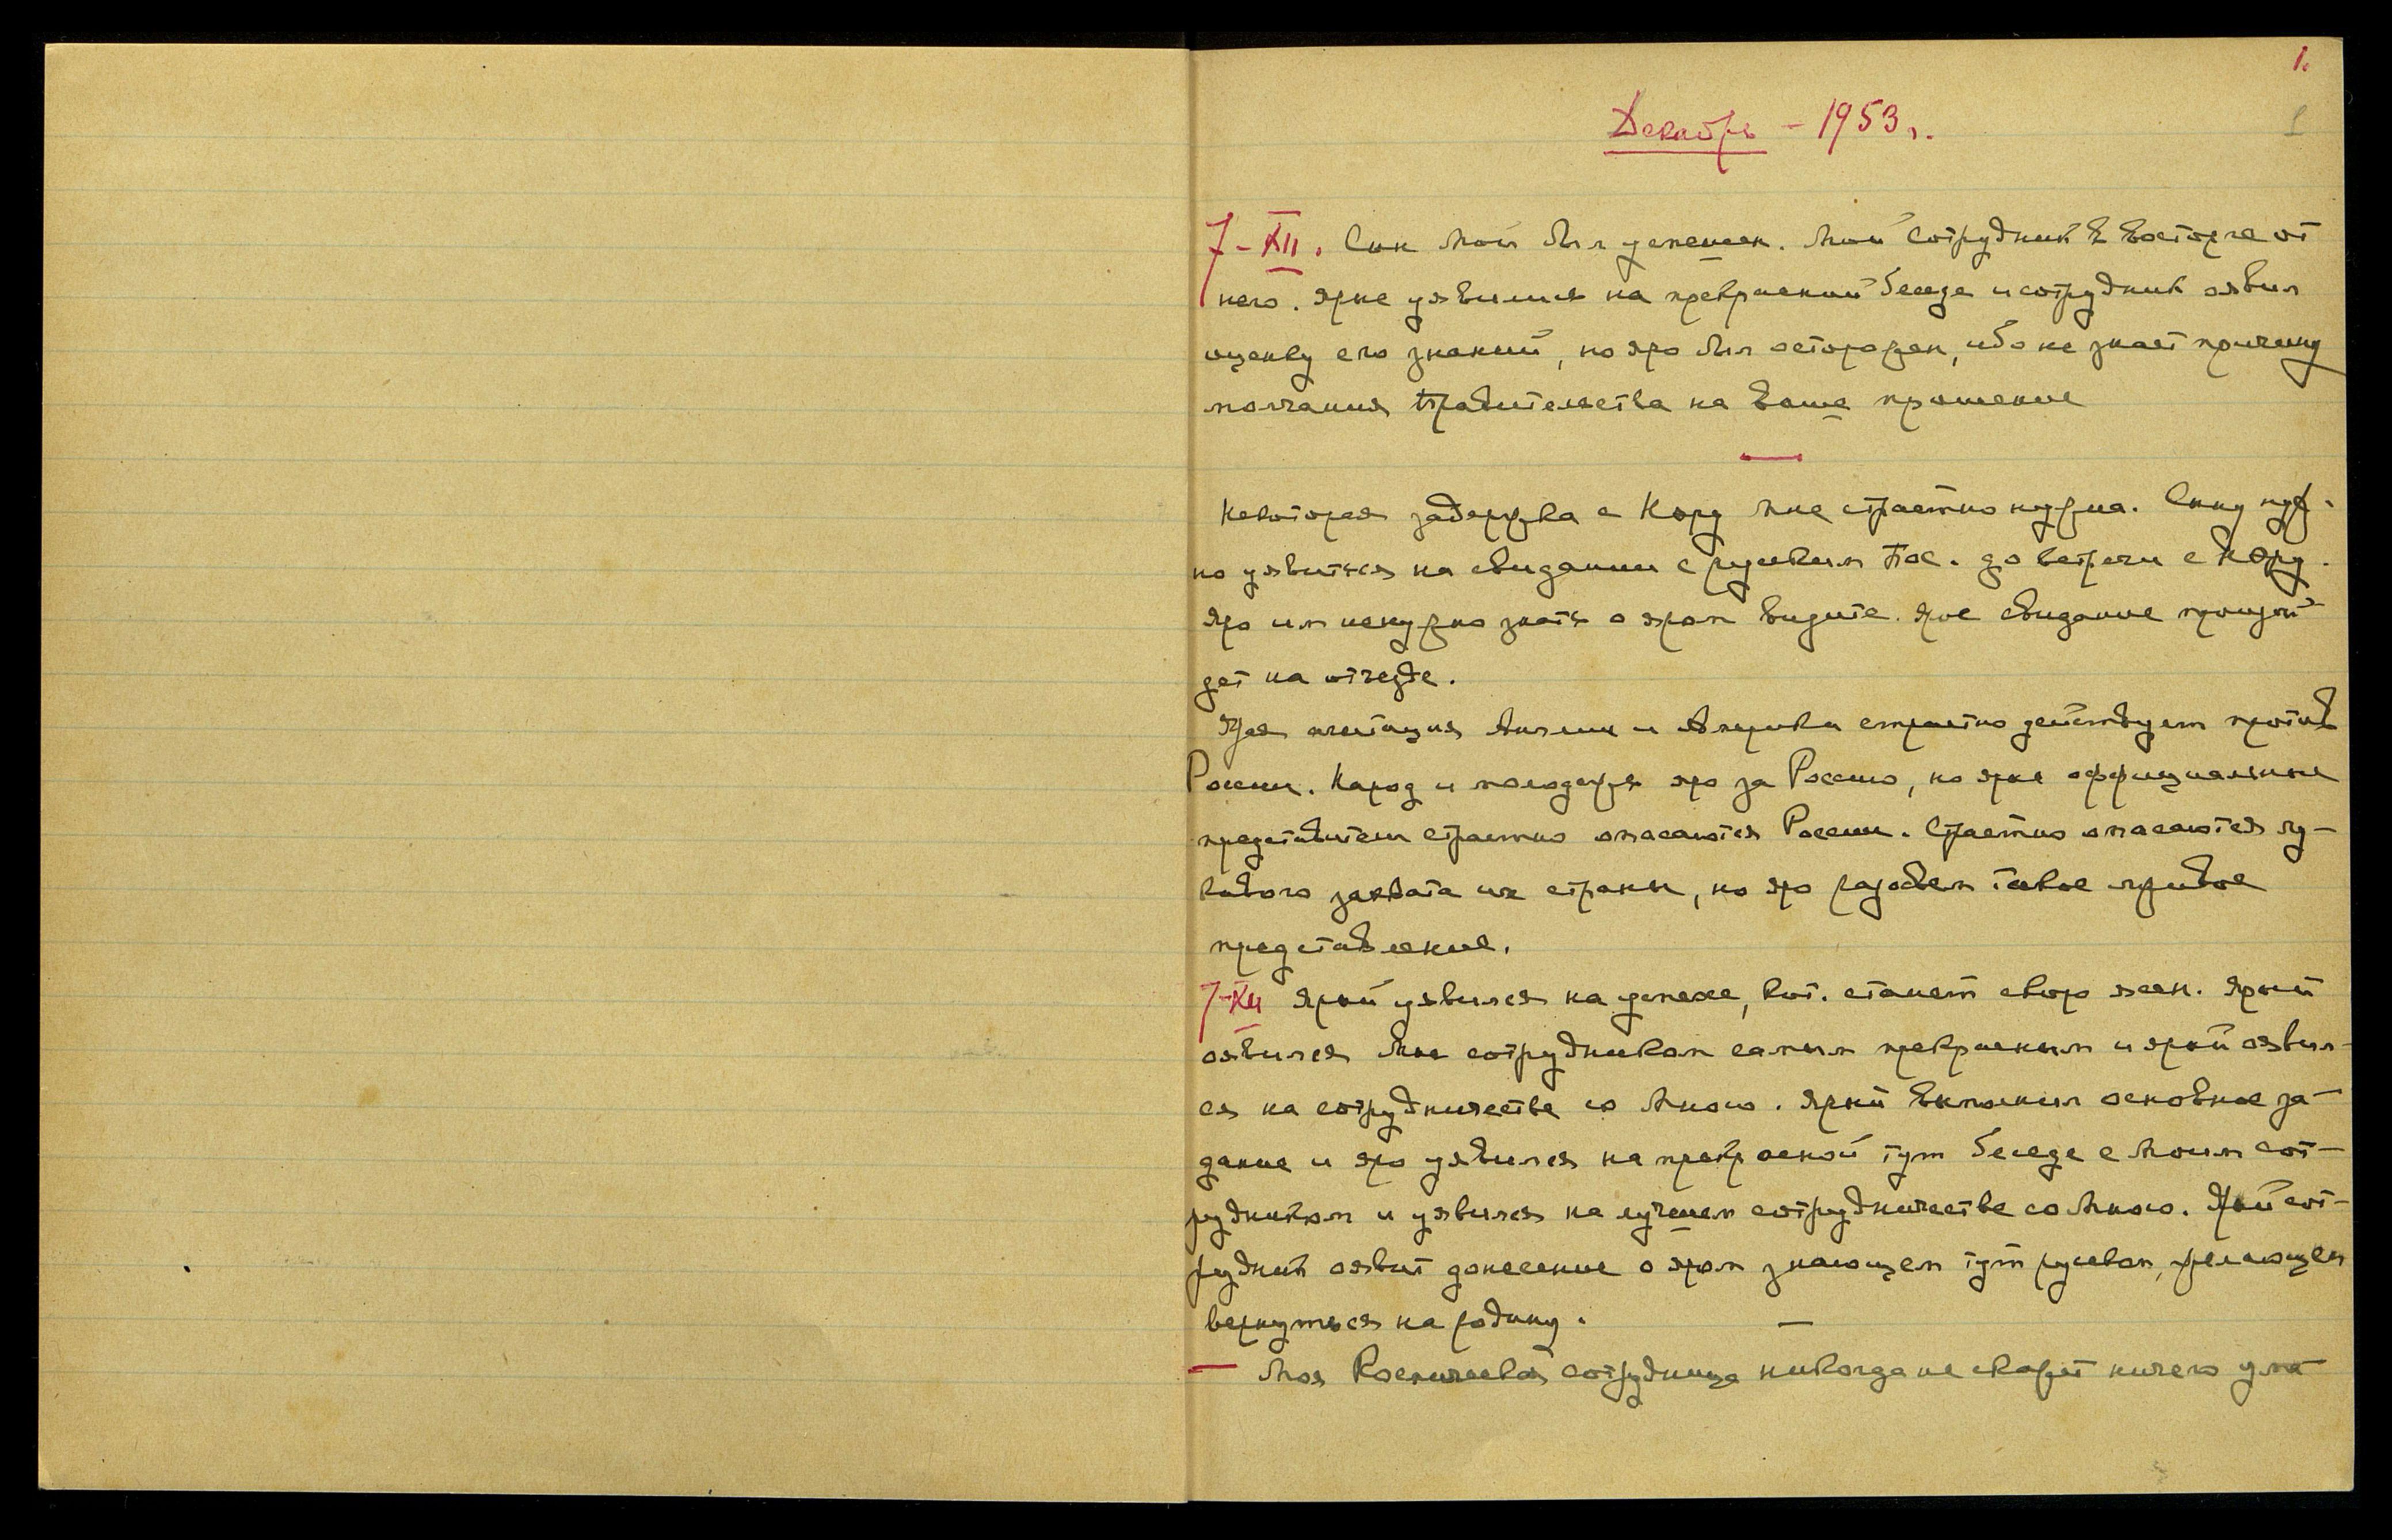 1.
1
Декабрь – 1953 г.
7–XII. Сын Мой был успешен. Мой сотрудник в восторге от
него. Яре уявился на прекрасной беседе и сотрудник оявил
оценку его знаний, но яро был осторожен, ибо не знает причину
молчания Правительства на Ваше прошение
Некоторая задержка с Нэру Мне страстно нужна. Сыну нуж-
но уявиться на свидании с русским Пос. до встречи с Нэру.
Яро им ненужно знать о яром визите. Ярое свидание произой-
дет на отъезде.
Ярая агитация Англии и Америки страстно действует против
России. Народ и молодежь яро за Россию, но ярые оффициальные
представители страстно опасаются России. Страстно опасаются лу-
кавого захвата их страны, но яро разобьем такое лживое
представление.
7–XII Ярый уявился на успехе, кот. станет скоро ясен. Ярый
оявился Мне сотрудником самым прекрасным и ярый оявил-
ся на сотрудничестве со Мною. Ярый выполнил основное за-
дание и яро уявился на прекрасной тут беседе с Моим сот-
рудником и уявился на лучшем сотрудничестве со Мною. Ярый сот-
рудник оявит донесение о яром знающем тут русском, желающем
вернуться на родину.
— Моя Космическая сотрудница никогда не скажет ничего ума-